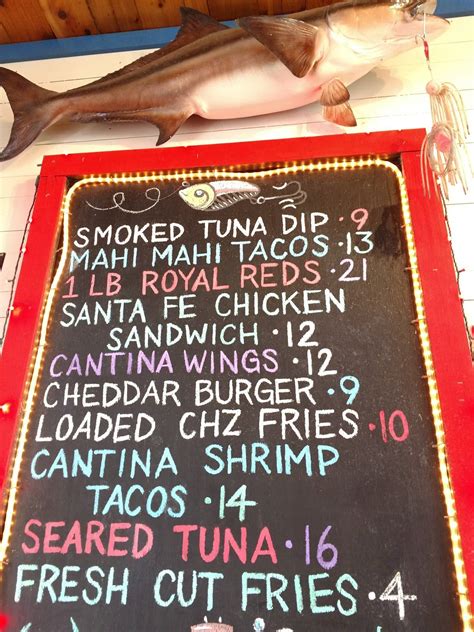 SMOKED TUNA DIP · 9
MAHI MAHI TACOS · 13
1 LB ROYAL REDS · 21
SANTA FE CHICKEN
SANDWICH · 12
CANTINA WINGS · 12
CHEDDAR BURGER · 9
LOADED CHZ FRIES · 10
CANTINA SHRIMP
TACOS · 14
SEARED TUNA · 16
FRESH CUT FRIES · 4